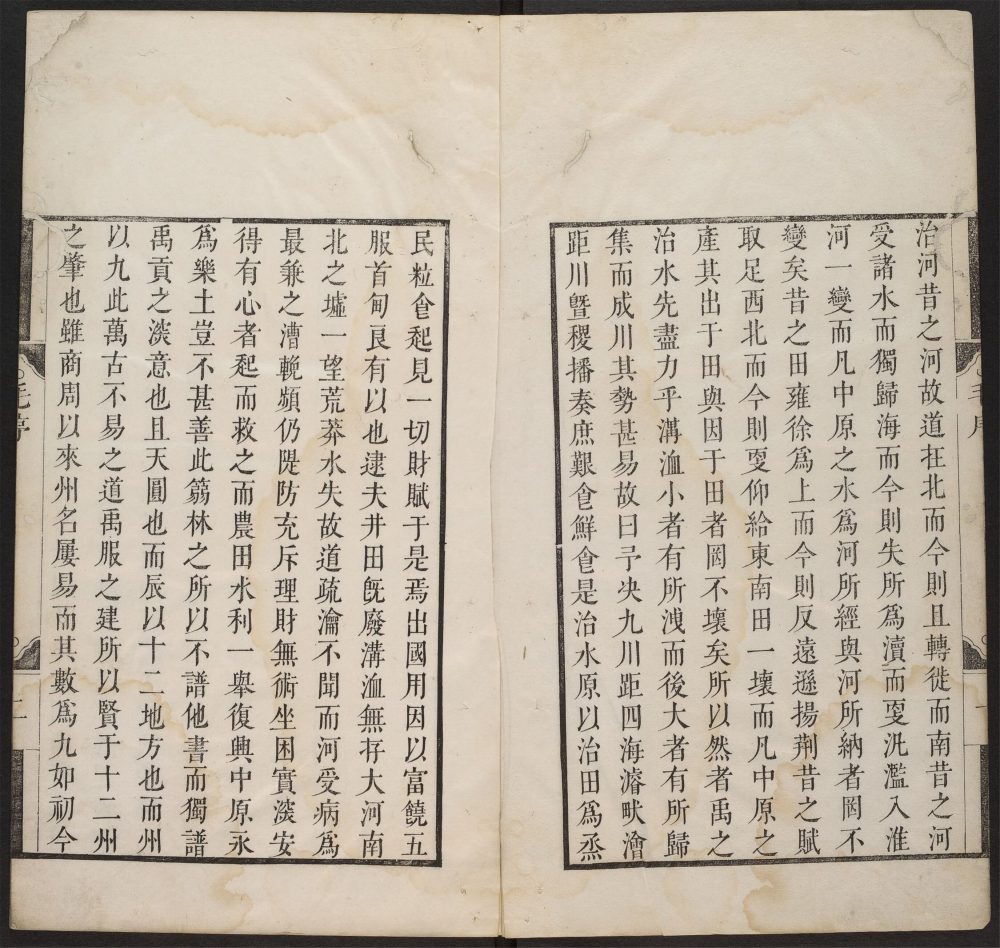 治河昔之河故道在北而今則且轉徙而南昔之河
受諸水而獨歸海而今則失所爲瀆而㪅汎濫入淮
河一變而凡中原之水爲河所經與河所納者罔不
變矣昔之田雍徐爲上而今則反遠遜揚荆昔之賦
取足西北而今則㪅仰給東南田一壞而凡中原之
產其出于田與因于田者罔不壞矣所以然者禹之
治水先盡力乎溝洫小者有所洩而後大者有所歸
集而成川其勢甚易故曰予决九川距四海濬畎澮
距川曁稷播奏庶艱食鮮食是治水原以治田爲烝
民粒食起見一切財賦于是焉出國用因以富饒五
服首甸良有以也逮夫井田旣廢溝洫無存大河南
北之墟一望荒莽水失故道疏瀹不聞而河受病爲
最兼之漕輓頻仍隄防充斥理財無術坐困實㴱安
得有心者起而救之而農田水利一舉復興中原永
爲樂土豈不甚善此蒻林之所以不譜他書而獨譜
禹貢之㴱意也且天圓也而辰以十二地方也而州
以九此萬古不易之道禹服之建所以賢于十二州
之肇也雖商周以來州名屢易而其數爲九如初今
毛序
一
毛序
二